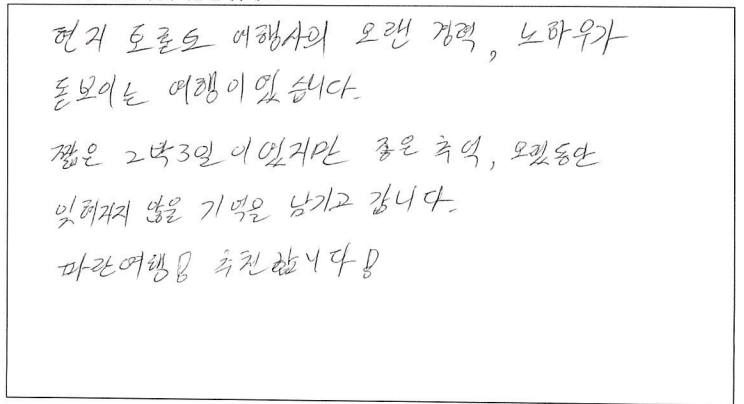 현지 토론토 여행사의 오랜 경력, 노하우가
돋보이는 여행이었습니다.
짧은 2박3일이었지만 좋은 추억, 오랬동안
잊혀지지 않을 기억을 남기고 갑니다.
파란여행! 추천합니다!